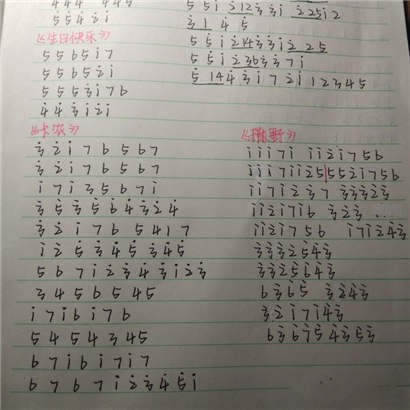 444 445
5 5 4 2̇ i
《生日快乐》
5 5 6 5 i 7
5 5 6 5 2̇ i
5 5 5̇ 3̇ i 7 6
4̇ 4̇ 3̇ i 2̇ i
《卡农》
3̇ 2̇ i 7 6 5 6 7
3̇ 2̇ i 7 6 5 6 7
i 7 i 3 5 6 7 i
3̇ 5̇ 3̇ 5̇ 6̇ 4̇ 3̇ 2̇ 4̇
3̇ 2̇ i 7 6 5 4 i 7
i 2̇ 5̇ 3̇ 4̇ 5̇ 3̇ 4̇ 5̇
5 6 7 i 2̇ 3̇ 4̇ 3̇ i 2̇ 3̇
3 4 5 6 5 4 5
i 7 i 6 i 7 6
5 4 5 4 3 4 5
6 7 i 6 i 7 i 7
6 7 6 7 i 2̇ 3̇ 4̇ 5̇ i
5 5 i 2̇ i 2̇ 3̇ 3̇ i 2̇ 5 i 2
3̇ i 4̇ 5
5 5 i 2̇ i 4̇ 3̇ 3̇ i 2̇ 2 5
5 5 i 2̇ i 3̇ 6 3̇ 3̇ 7 i
5 i 4̇ 4̇ 3̇ i 7 i 2̇ i 2 3 4 5
《撒野》
i i i 7 i i i 2̇ i 7 5 6
i i i 7 i i 2̇ 5 5 5 2̇ i 7 5 6
i i 7 i 2̇ 3̇ 7 3̇ 3̇ 3̇ 2̇ 3̇
i i 2̇ i 7 i 6 3̇ 2̇ 3̇ ...
i i 2̇ i 7 5 6 i 7 i 2̇ 4̇ 3̇
3̇ 3̇ 3̇ 2̇ 5̇ 4̇ 3̇
3̇ 3̇ 2̇ 5̇ 6̇ 4̇ 3̇
6 3̇ 6̇ 5̇ 3̇ 2̇ 4̇ 3̇
3̇ 2̇ i 7 i 4̇ 3̇
6 3̇ 6̇ 7̇ 5̇ 4̇ 3̇ 5̇ 3̇